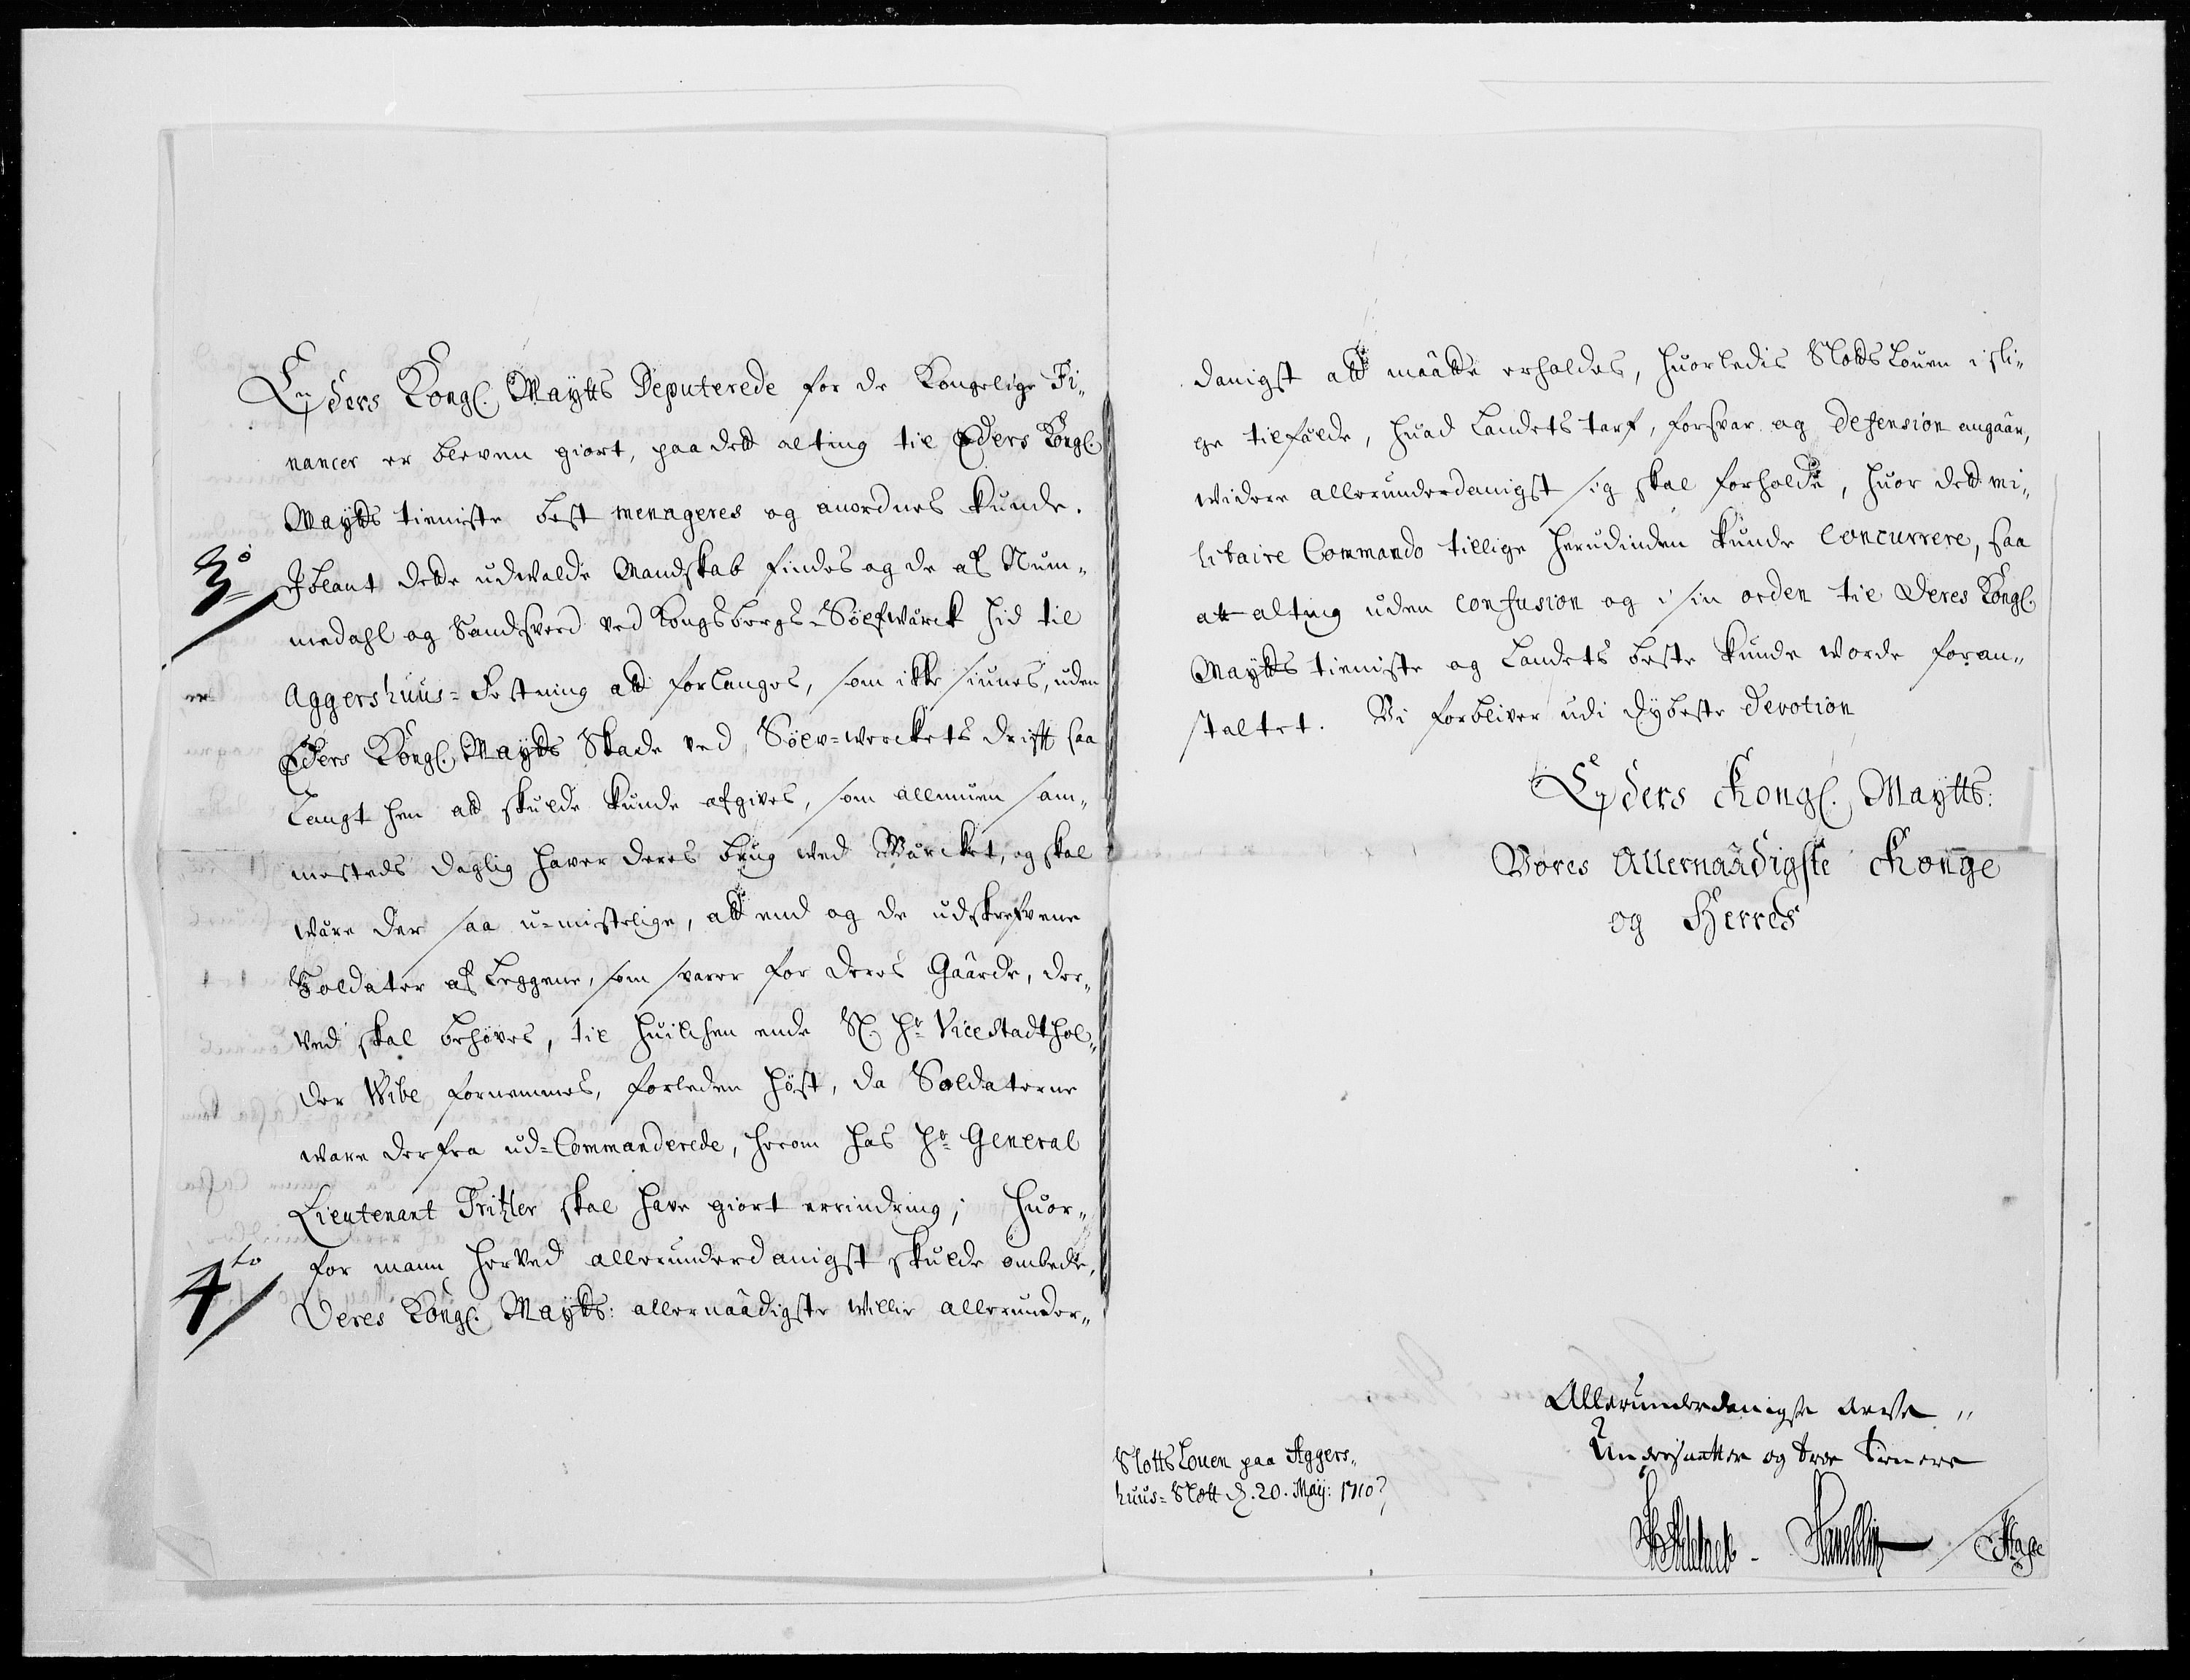 Eders Kongl. Maytts Deputerede for de Kongelige Fi„
nancer er bleven giort, paa dett alting til Eders Kongl.
Maytts tieniste best menageres og anordnes kunde.
3o
Iblant dette udvalde Mandskab findes og de af Num„
medahl og Sandsverd ved Kongsbergs Sölfwärck hid til
Aggershuus=Festning att forlanges, som ikke siunes, uden
Eders Kongl. Maytts Skade ved Sölv=werckets drifft saa
langt hen att skulde kunde afgives, som allmuen sam„
mesteds daglig haver deres brug ved Wärcket, og skal
wäre der saa u=mistelige, att end og de udskrefvene
Soldater af Leggene, som svarer for deres Gaarde, der„
ved skal behøves, til huilchen ende Sl. Hr Vice Stadthol„
der Wibe fornemmes, forleden höst, da Soldaterne
ware derfra ud=Commanderede, herom hos Hr General
Lieutenant Tritzler skal have giort errindring; Huor„
4to
for mann herved allerunderdanigst skulde ombede,
Deres Kongl. Maytts: allernaadigste willie allerunder„
danigst att maatte erholdes, huorledis Slotts Louen i sli„
ge tilfälde, huad Landets tarf, forsvar og Defension angaar,
widere allerunderdanigst sig skal forholde, huor dett mi„
litaire Commando tillige herudinden kunde concurrere, saa
att alting uden confusion og i sin orden til Deres Kongl.
Maytts tieniste og Landets beste kunde worde foran„
staltet. Vi forbliver udi dybeste Devotion
Eders Kongl. Maytts:
Vores Allernaadigste Konge
og Herres
Allerunderdanigste arfve„
Undersaatter og troe Tienere
Slotts Louen paa Aggers„
huus=Slott d. 20. May: 1710